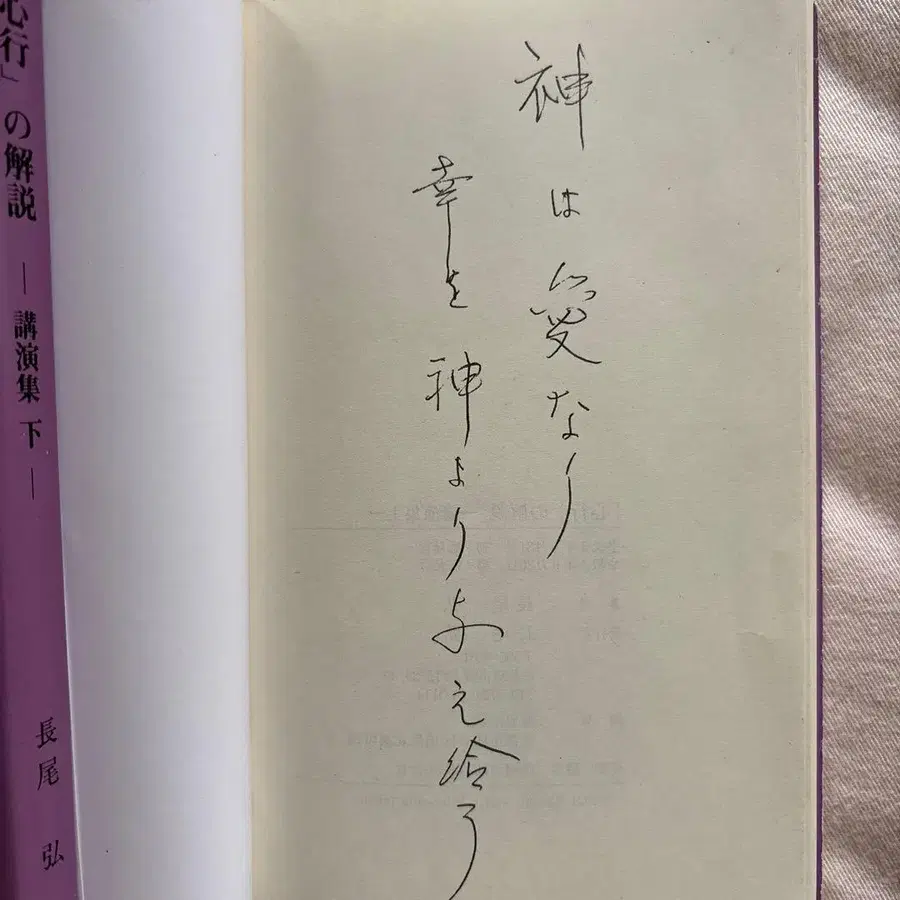 神は愛なり
幸を神より与え給う
心行」の解説 ― 講演集 下 ―
長尾 弘